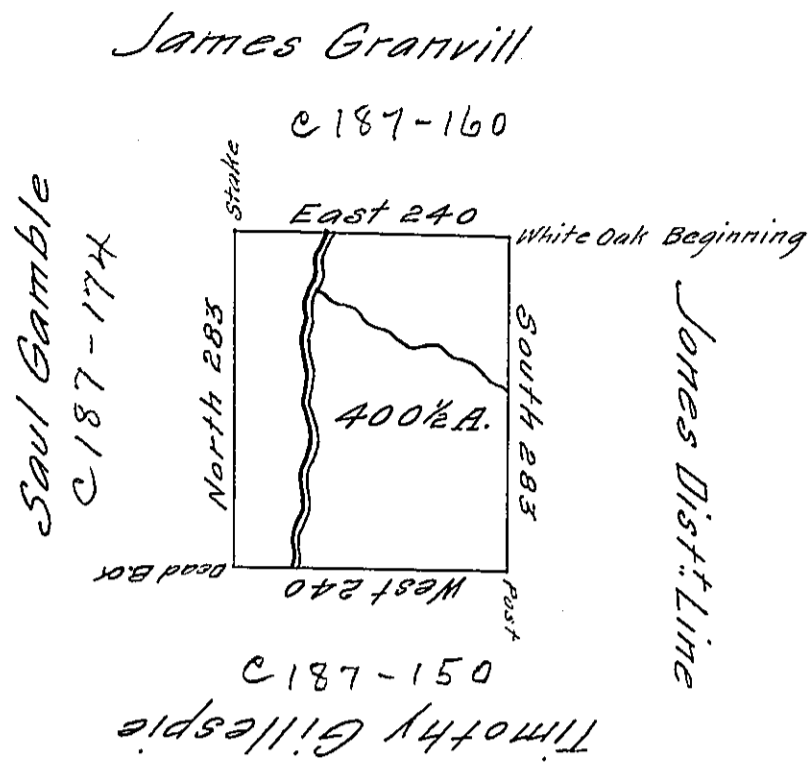 James Granvill
C 187-160
Stake
East 240
White Oak Beginning
Saul Gamble
C 187-174
North 283
400½ A.
South 283
Jones Dist.t Line
Dead B.O.
West 240
Post
C 187-150
Timothy Gillespie